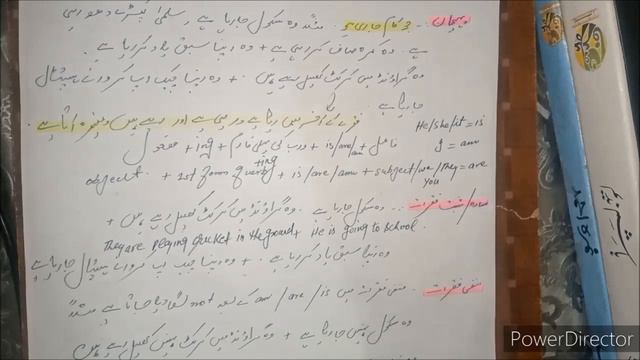 پہچان:۔ جو کام جاری ہو۔ مثلاً وہ سکول جا رہا ہے۔ سلمیٰ کپڑے دھو رہی
ہے۔ وہ کمرہ صاف کر رہی ہے + وہ اپنا سبق یاد کر رہا ہے۔
وہ گراؤنڈ میں کرکٹ کھیل رہے ہیں۔ + وہ اپنا چیک اپ کروانے ہسپتال
جا رہا ہے
فقرے کے آخر میں رہا ہے، رہی ہے اور رہے ہیں وغیرہ آتا ہے۔
He/she/it = is
فاعل + is/are/am + ورب کی پہلی فارم + ing + مفعول
I = am
object + 1st form of verb + ing + is/are/am + subject/we/They = are
You
مثبت فقرات:۔ وہ سکول جا رہا ہے۔ وہ گراؤنڈ میں کرکٹ کھیل رہے ہیں +
They are playing cricket in the ground + He is going to school.
وہ اپنا سبق یاد کر رہا ہے۔ + وہ اپنا چیک اپ کروانے ہسپتال جا رہا ہے
منفی فقرات:۔ منفی فقرات میں is/are/am کے بعد not لگایا جاتا ہے مثلاً
وہ سکول نہیں جا رہا ہے + وہ گراؤنڈ میں کرکٹ نہیں کھیل رہے ہیں
PowerDirector